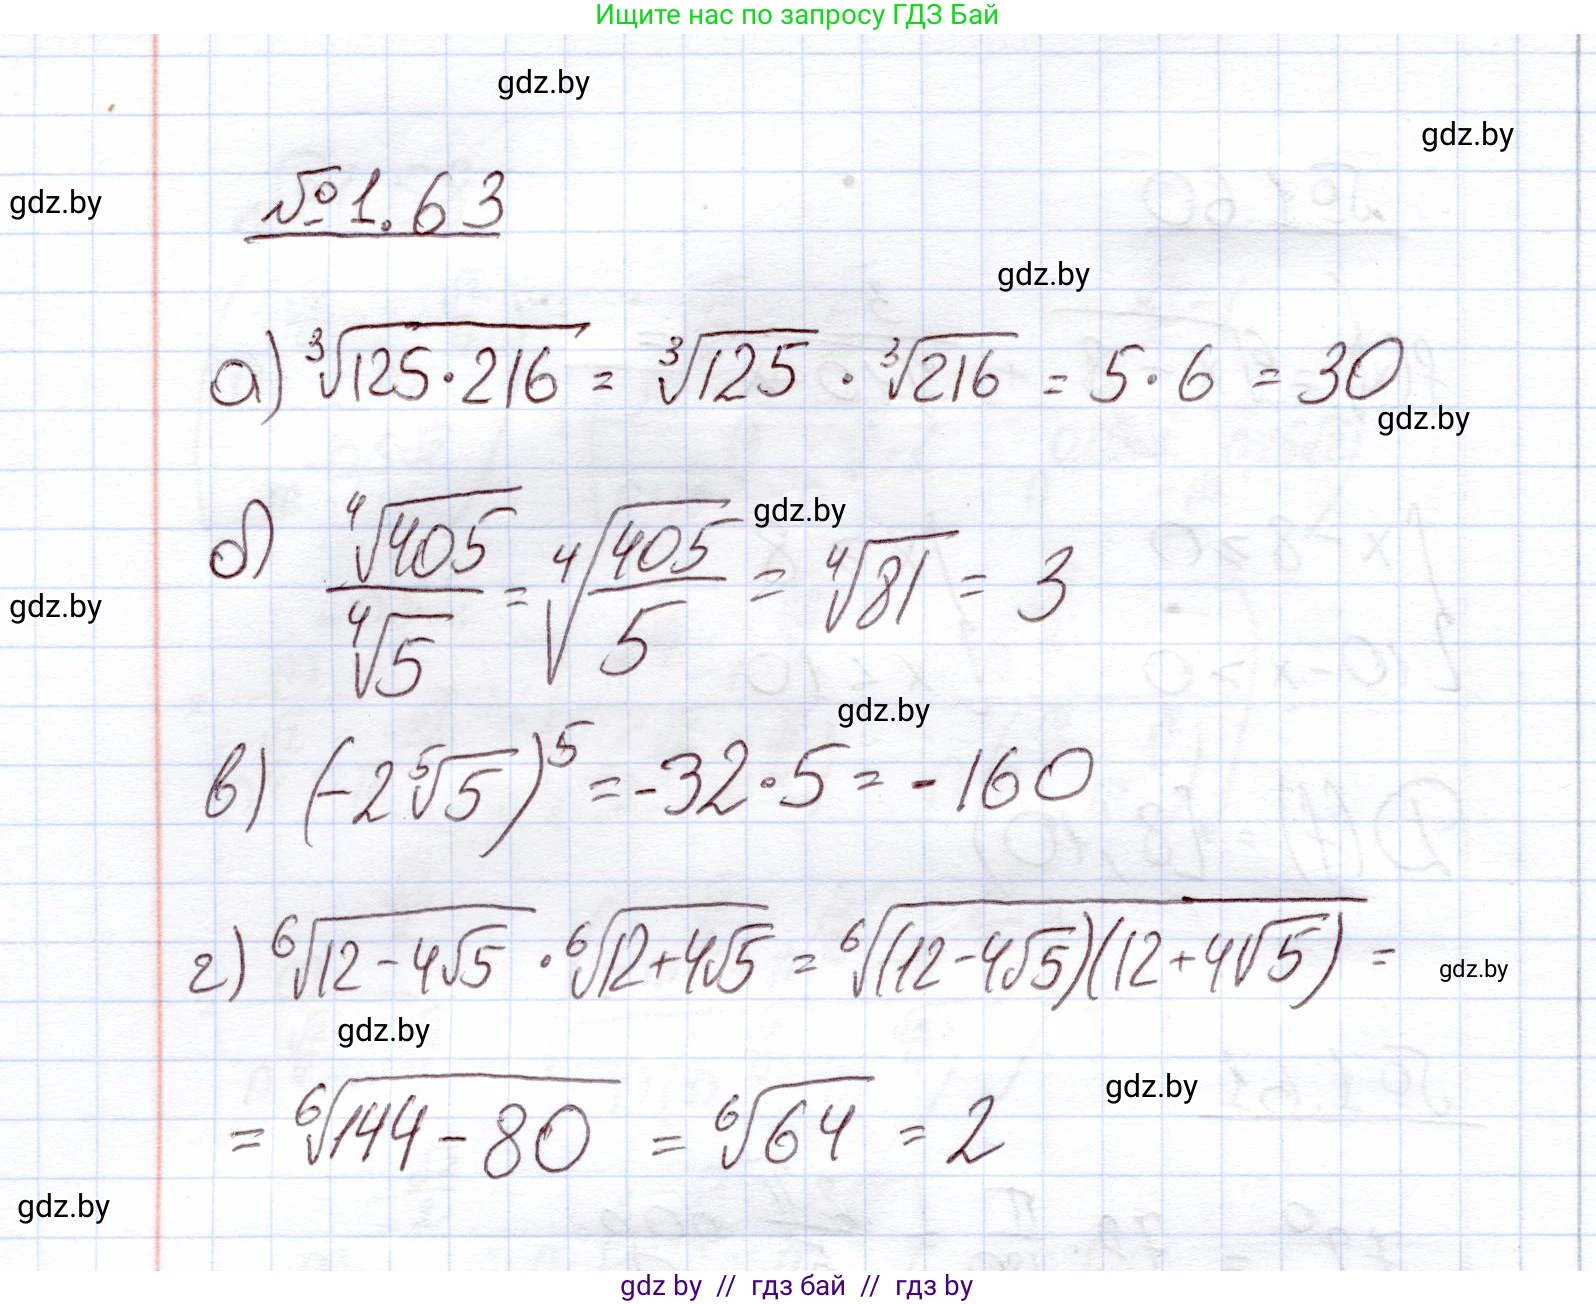 Ищите нас по запросу ГДЗ Бай
gdz.by
gdz.by
gdz.by
№1.63
gdz.by
а) ∛(125·216) = ∛125 · ∛216 = 5·6 = 30
gdz.by
gdz.by
б) ⁴√405 / ⁴√5 = ⁴√(405/5) = ⁴√81 = 3
gdz.by
gdz.by
в) (-2⁵√5)⁵ = -32·5 = -160
г) ⁶√(12-4√5) · ⁶√(12+4√5) = ⁶√((12-4√5)(12+4√5)) =
gdz.by
gdz.by
gdz.by
= ⁶√(144-80) = ⁶√64 = 2
gdz.by
gdz by // гдз бай // гдз by